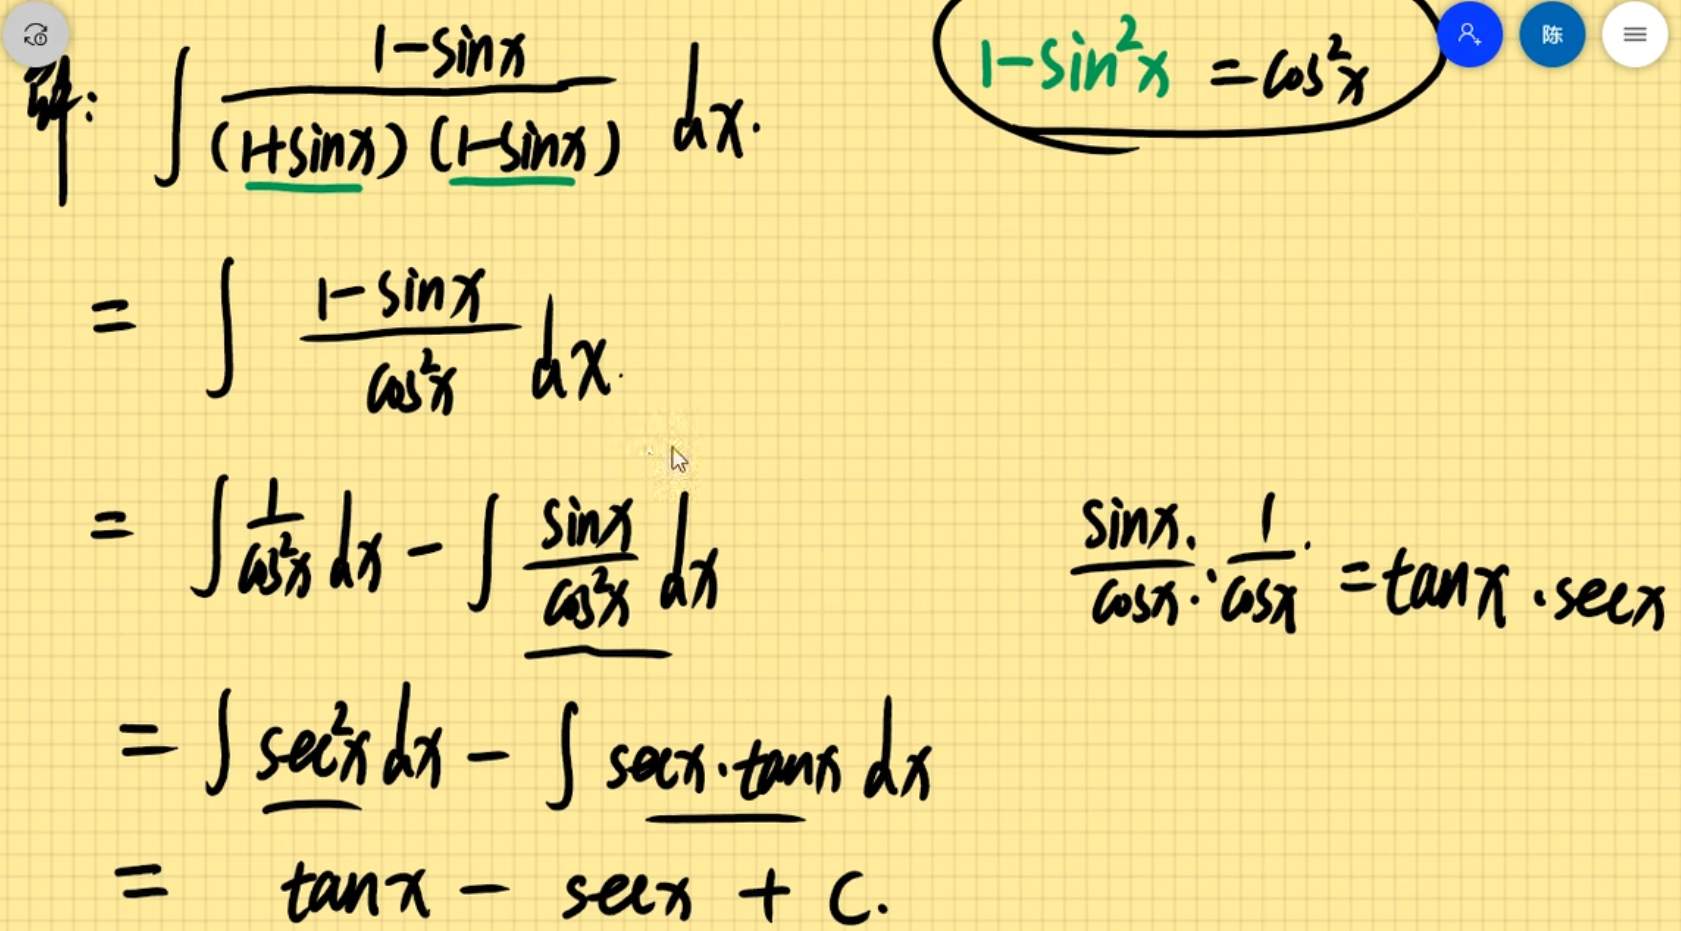 解: ∫ (1-sinx)/((1+sinx)(1-sinx)) dx.
1-sin²x = cos²x
陈
= ∫ (1-sinx)/(cos²x) dx.
= ∫ 1/(cos²x) dx - ∫ sinx/(cos²x) dx
sinx/cosx · 1/cosx = tanx · secx
= ∫ sec²x dx - ∫ secx·tanx dx
= tanx - secx + C.